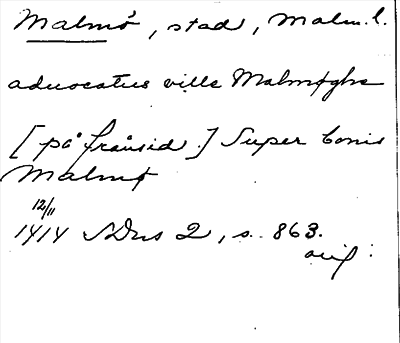 Malmö, stad, Malm. l.
aduocatus ville Malmøghe
[på frånsid.] Super bonis
Malmø
12/11
1414 SDns 2, s. 863.
orig: